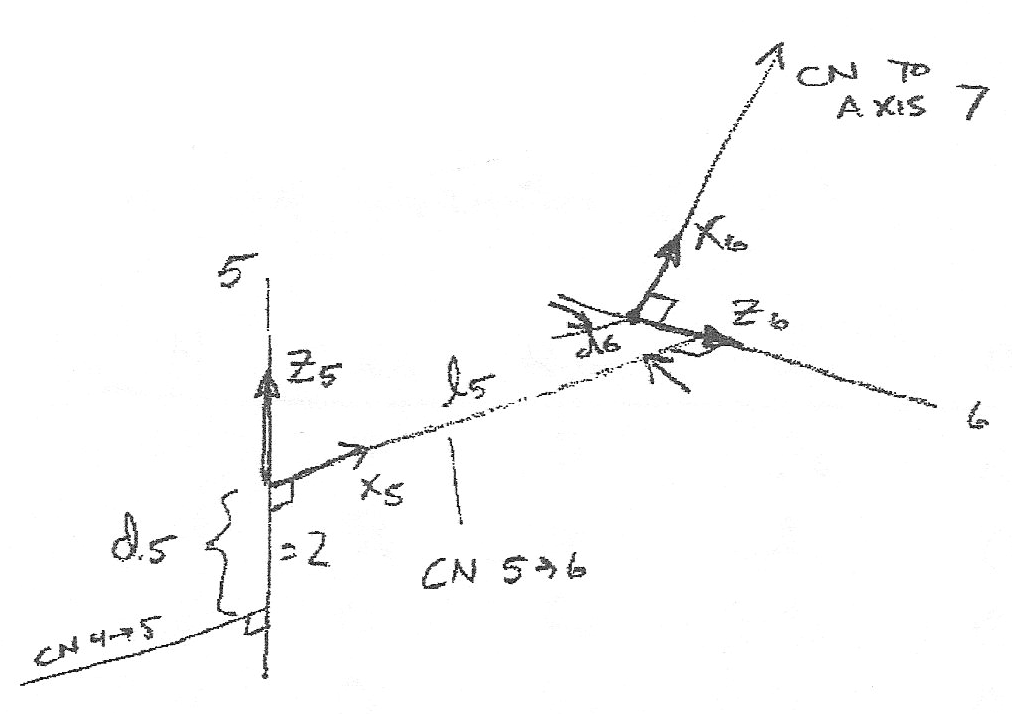 CN TO
AXIS 7
X6
5
Z6
Z5
d6
l5
6
X5
d5
=2
CN 5→6
CN 4→5